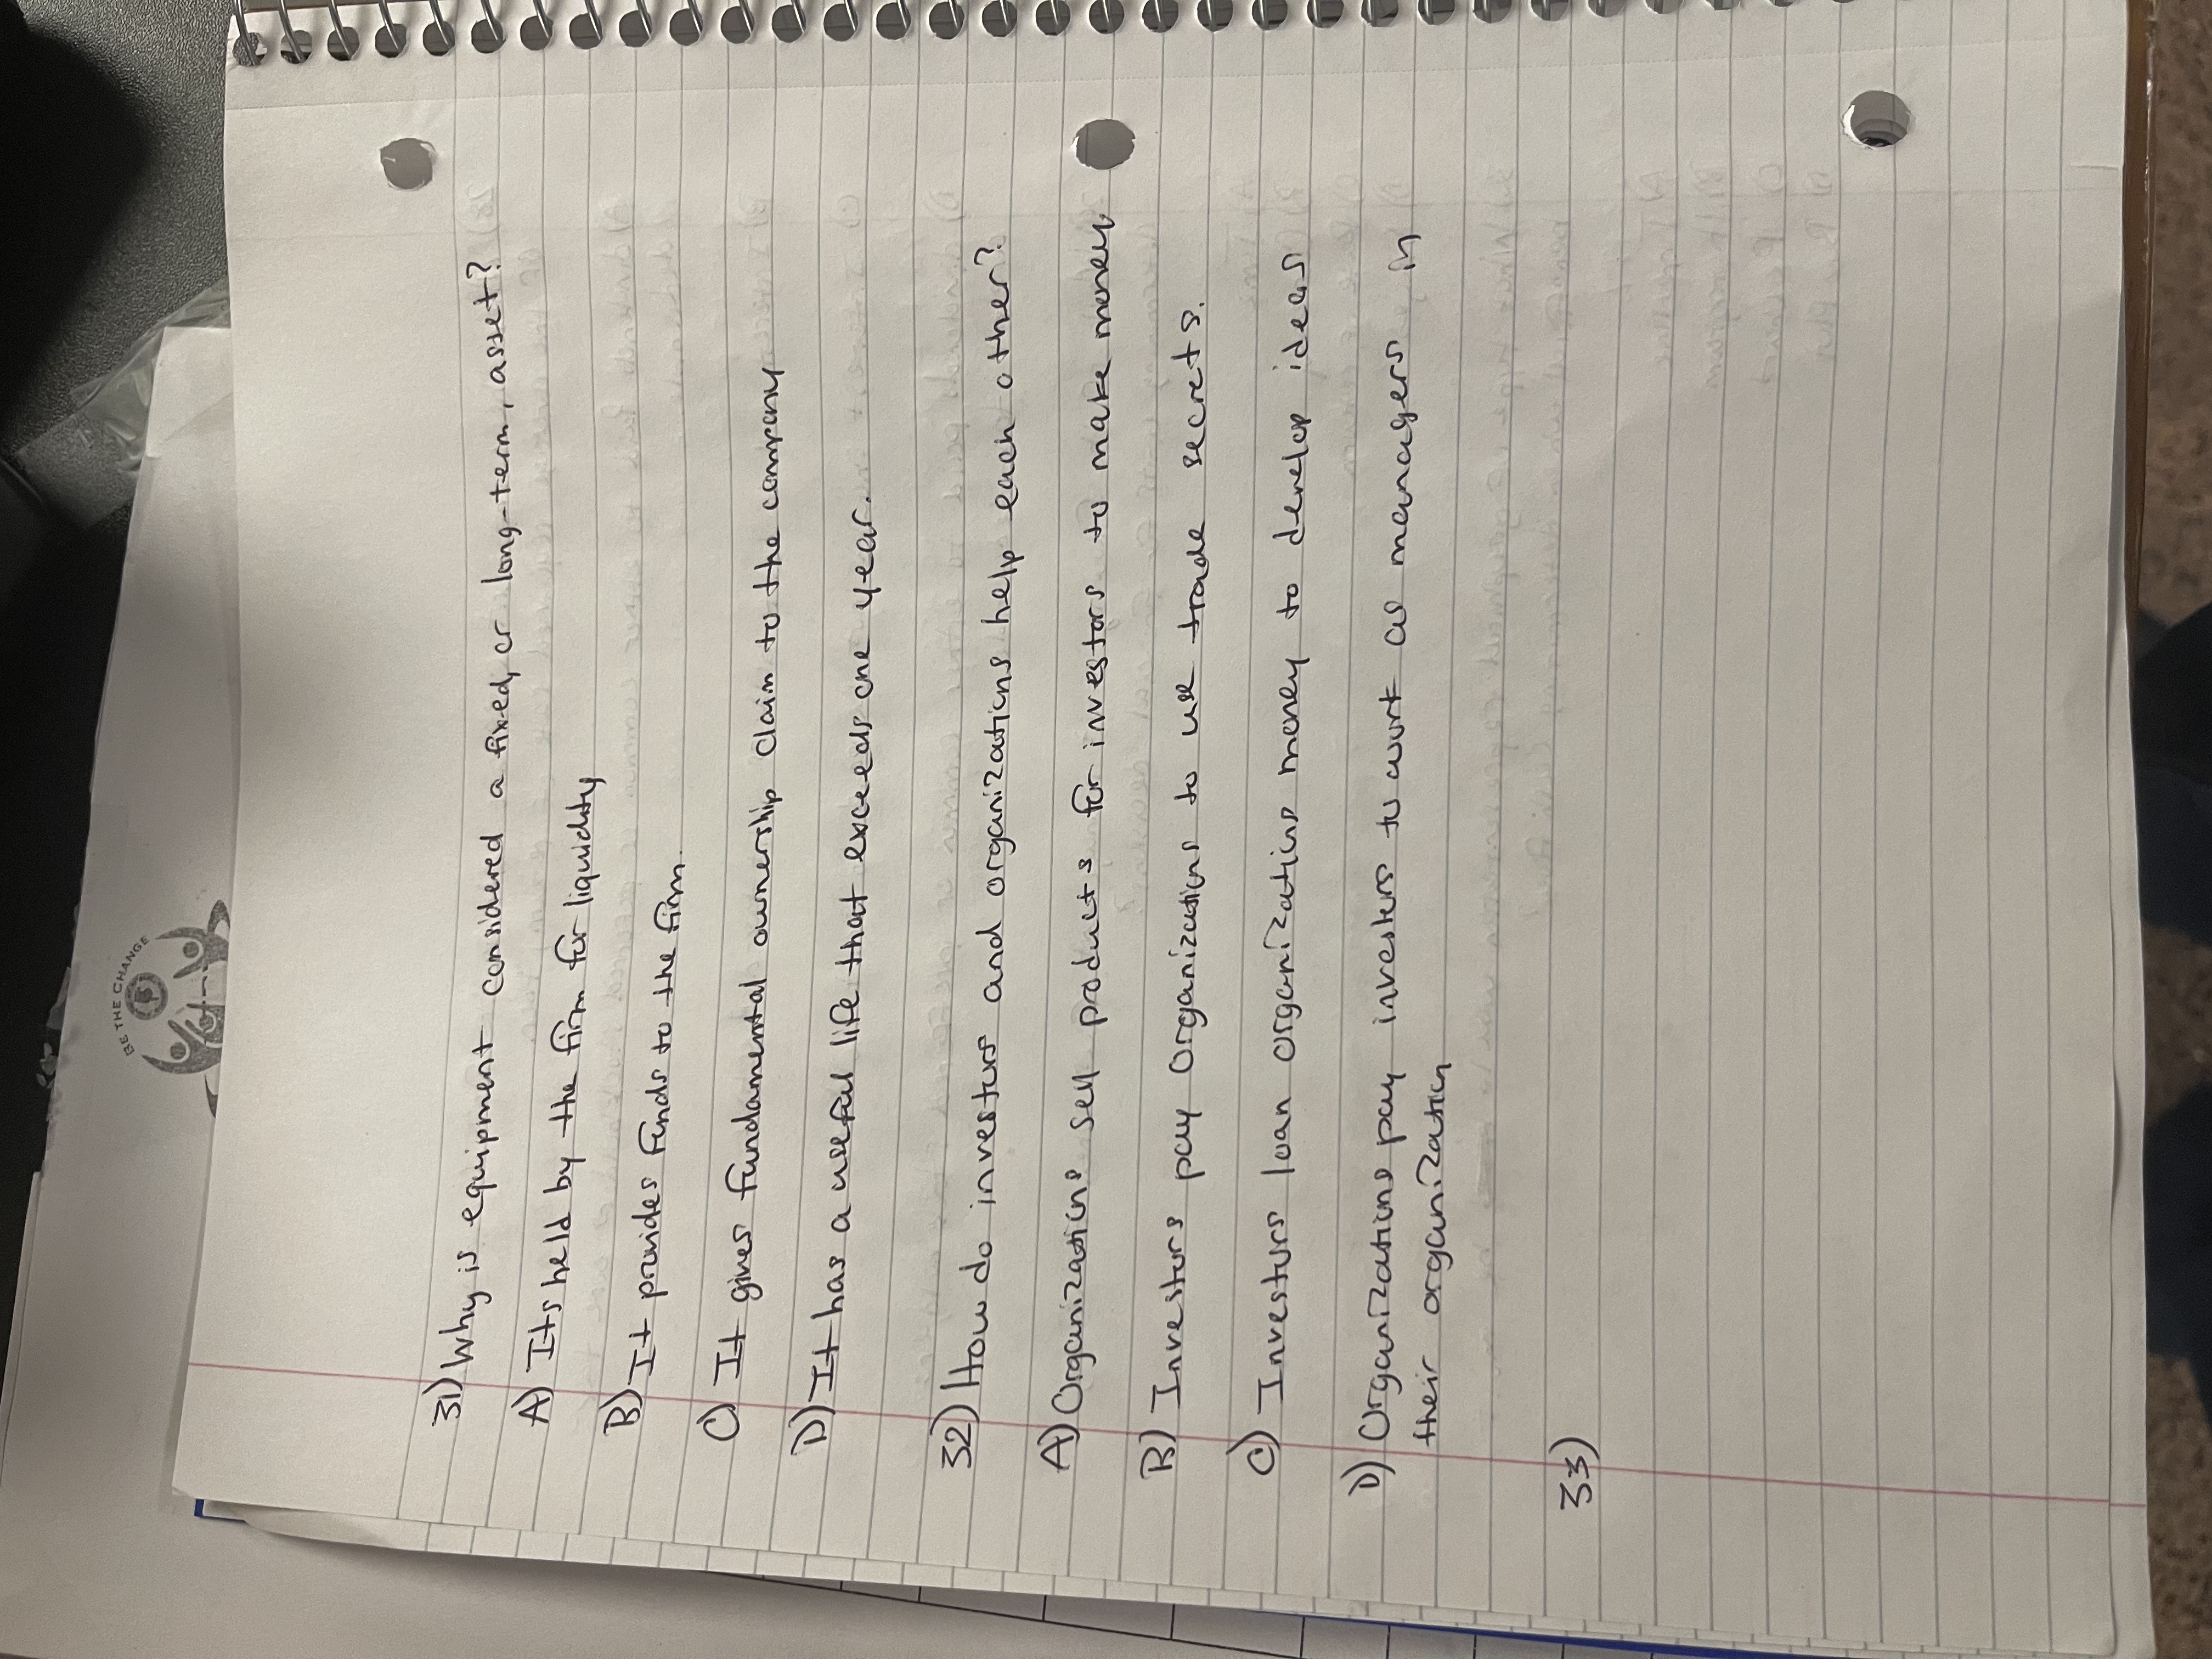 BE THE CHANGE
31) Why is equipment considered a fixed, or long-term, asset?
A) Its held by the firm for liquidity
B) It provides funds to the firm.
C) It gives fundamental ownership claim to the company
D) It has a useful life that exceeds one year.
32) How do investors and organizations help each other?
A) Organizations sell products for investors to make money
B) Investors pay organizations to use trade secrets.
C) Investors loan organizations money to develop ideas
D) Organizations pay investors to work as managers in
their organization
33)